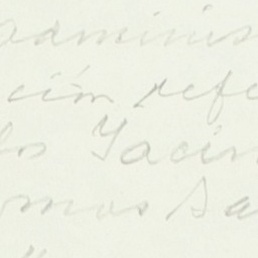 adminis
ción defe
los Yacim
omos Sa